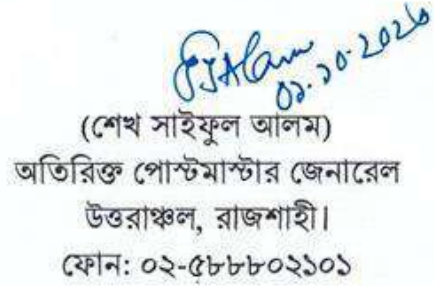 (শেখ সাইফুল আলম)
অতিরিক্ত পোস্টমাস্টার জেনারেল
উত্তরাঞ্চল, রাজশাহী।
ফোন: ০২-৫৮৮৮০২১০১